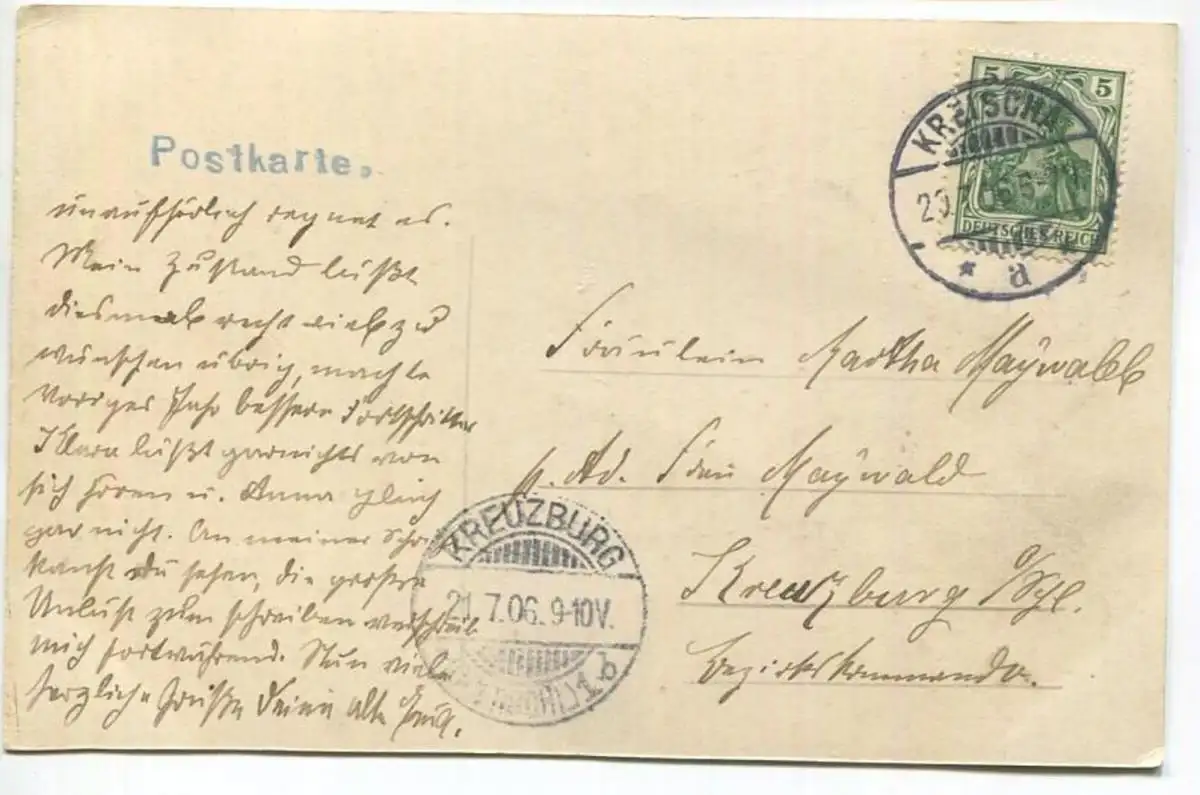 Postkarte.
unaufhörlich regnet es.
Mein Zustand läßt
diesmal recht viel zu
wünschen übrig, machte
voriges Jahr bessere Fortschritte
Klara läßt garnichts von
sich hören u. Anna gleich
gar nicht. An meiner Schrift
kannst du sehen, die große
Unlust zum schreiben
mich fortwährend. Nun viele
herzliche Grüße Deine alte
5 5
DEUTSCHES REICH
KREISCHA
20.7.06.5-
* a
Fräulein Martha Maÿwald
p. Ad. Frau Maÿwald
Kreuzburg O/Schl.
Bezirkskommando.
KREUZBURG
21.7.06.9-10V.
1 b